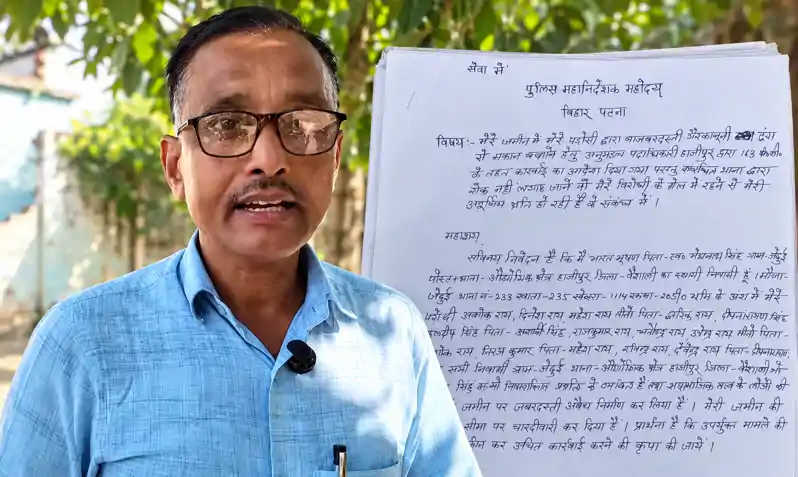 सेवा में
पुलिस महानिर्देशक महोदय
बिहार पटना
विषय:- मेरे जमीन में मेरे पड़ोसी द्वारा बाजबरदस्ती गैरकानूनी ढंग
से मकान बनाने हेतु अनुमंडल पदाधिकारी हाजीपुर द्वारा 163
के तहत कारवाई का आदेश दिया गया परन्तु थाना द्वारा
रोक नहीं लगाए जाने वो मेरे विरोधी के मेल में रहने से मेरी
क्षति हो रही है के संबंध में ।
महाशय,
सविनय निवेदन है कि मैं भारत भूषण पिता - स्व० मेघनाथ सिंह ग्राम-जेढुई
पोस्ट+थाना - औद्योगिक क्षेत्र हाजीपुर जिला - वैशाली का स्थायी निवासी हूँ । मौजा-
जेढुई थाना नं-233 खाता-235 खेसरा-1114 रकबा-20डी० भूमि के अंश में मेरे
अशोक राय, दिनेश राय महेश राय तीनों पिता- राय, दीपनारायण सिंह
सिंह पिता - सिंह, राजकुमार राय, राय, उपेन्द्र राय तीनों पिता-
राय, कुमार पिता-महेश राय, रविन्द्र राय, देवेन्द्र राय पिता-दीपनारायण
सभी निवासी ग्राम-जेढुई थाना-औद्योगिक क्षेत्र हाजीपुर जिला- वैशाली
सभी प्रवृति के तथा असामाजिक तत्व के लोगों की
जमीन पर जबरदस्ती अवैध निर्माण कर लिया है । मेरी जमीन की
सीमा पर चारदीवारी कर दिया है । प्रार्थना है कि उपर्युक्त मामले की
कर उचित कार्रवाई करने की कृपा की जाये ।